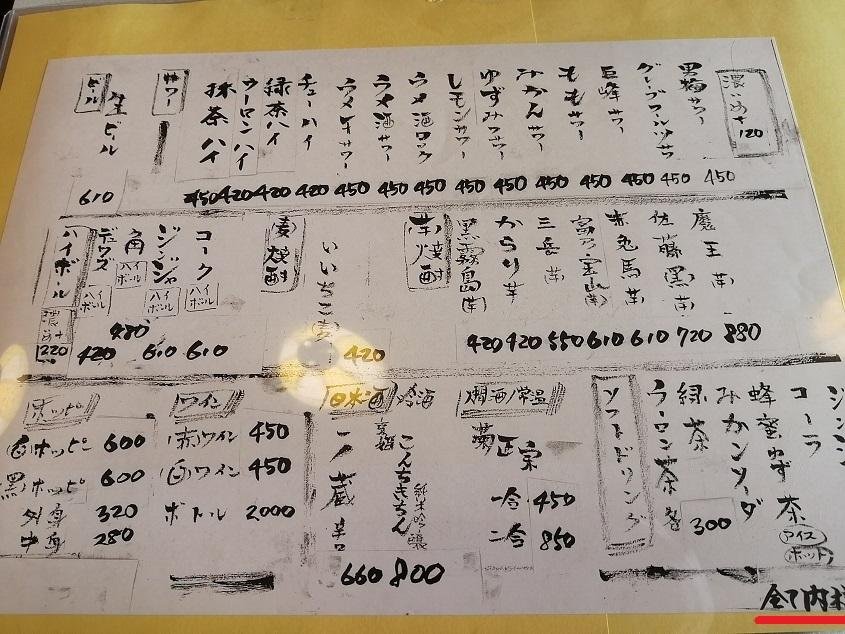 ビール
生ビール
610
サワー
抹茶ハイ
450
ウーロンハイ
420
緑茶ハイ
420
チューハイ
420
ウメ干サワー
450
ウメ酒サワー
450
ウメ酒ロック
450
レモンサワー
450
ゆずみつサワー
450
みかんサワー
450
ももサワー
450
巨峰サワー
450
グレープフルーツサワー
450
男梅サワー
450
濃いめ+
120
ハイボール
濃いめ+
デュワーズ
ハイボール
420
角
ハイボール
480
ジンジャー
ハイボール
610
コーク
ハイボール
610
麦焼酎
いいちこ(麦)
420
芋焼酎
黒霧島(芋)
420
からり芋
420
三岳(芋)
550
富乃宝山(芋)
610
赤兎馬(芋)
610
佐藤黒(芋)
720
魔王(芋)
880
ホッピー
(白)ホッピー 600
黒ホッピー 600
外身 320
中身 280
ワイン
(赤)ワイン 450
(白)ワイン 450
ボトル 2000
日本酒
冷酒
一ノ蔵 辛口
660
京都
こんちきちん
純米吟醸
800
燗酒/常温
菊正宗
一合 450
二合 850
ソフトドリンク
ウーロン茶
緑茶
各300
みかんソーダ
蜂蜜ゆず茶
アイス
ホット
コーラ
ジンジ
全て内